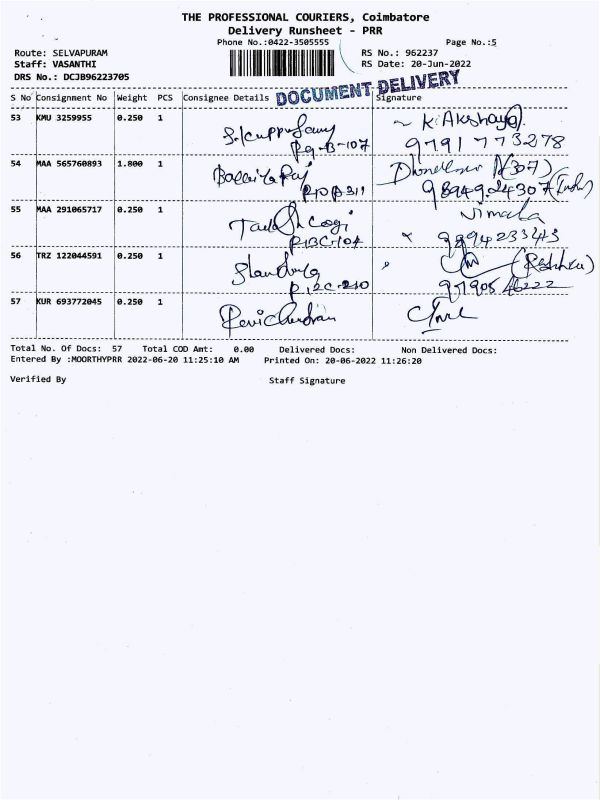 THE PROFESSIONAL COURIERS, Coimbatore
Delivery Runsheet - PRR
Phone No.:0422-3505555
Page No.:5
Route: SELVAPURAM
RS No.: 962237
Staff: VASANTHI
RS Date: 20-Jun-2022
DRS No.: DCJB96223705
DOCUMENT DELIVERY
S No Consignment No Weight PCS Consignee Details Signature
53 KMU 3259955 0.250 1
K. Akshaya
9791773278
54 MAA 565760893 1.800 1
(307)
55 MAA 291065717 0.250 1
Vimala
9894233343
56 TRZ 122044591 0.250 1
57 KUR 693772045 0.250 1 Ravichandran
Total No. Of Docs: 57 Total COD Amt: 0.00 Delivered Docs: Non Delivered Docs:
Entered By :MOORTHYPRR 2022-06-20 11:25:10 AM Printed On: 20-06-2022 11:26:20
Verified By Staff Signature